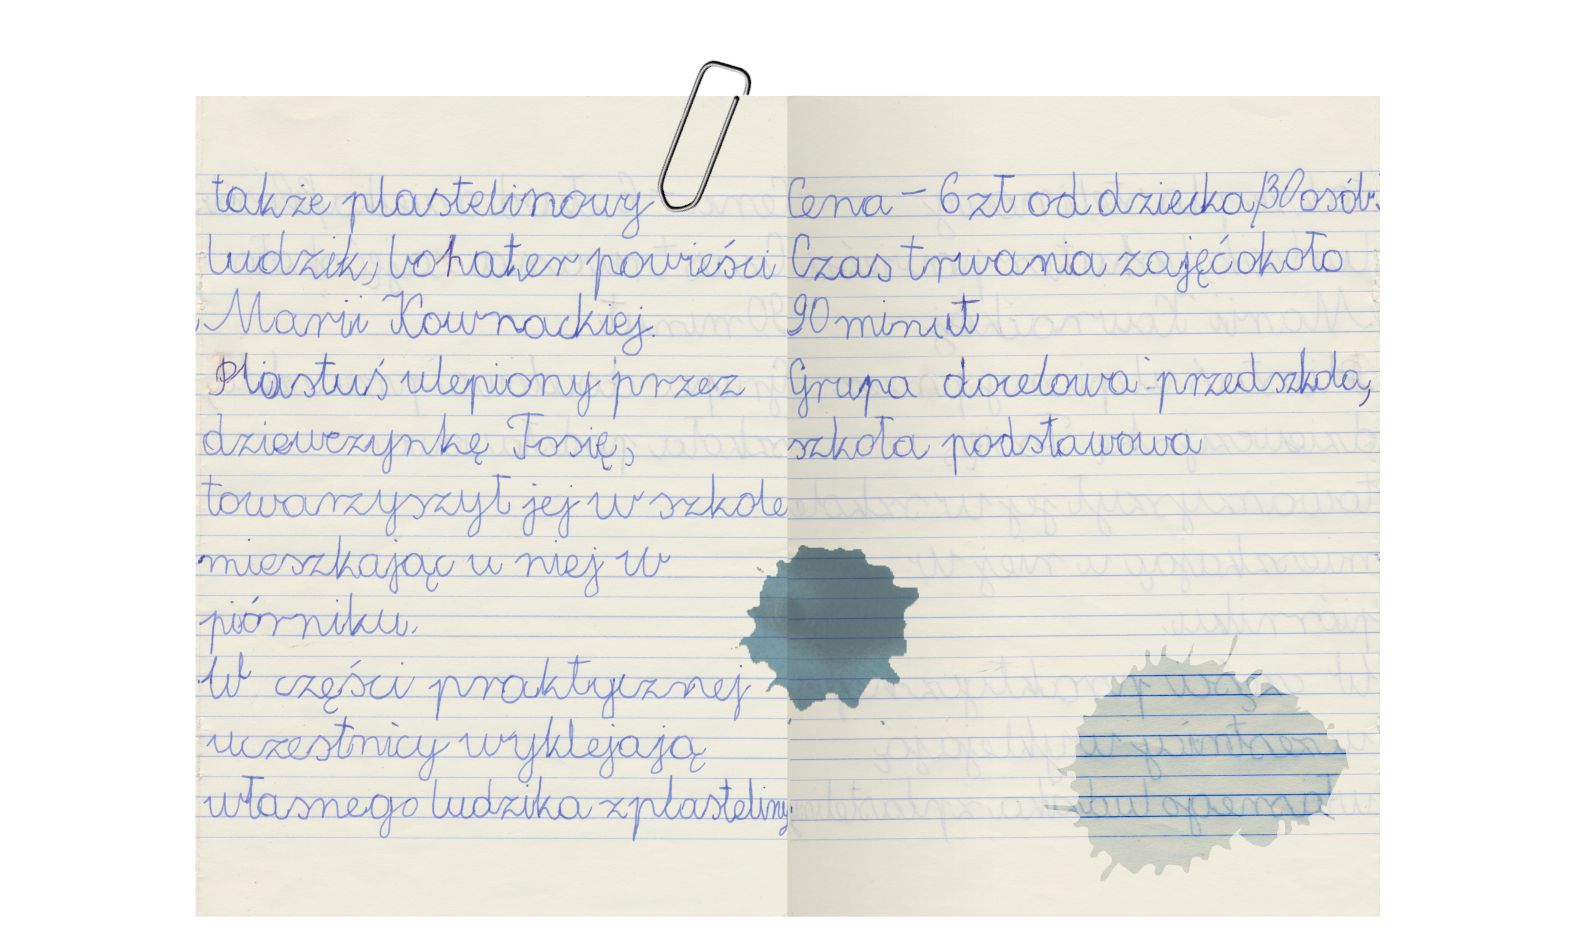 także plastelinowy
ludzik, bohater powieści
Marii Kownackiej.
Plastuś ulepiony przez
dziewczynkę Tosię,
towarzyszył jej w szkole
mieszkając u niej w
piórniku.
W części praktycznej
uczestnicy wyklejają
własnego ludzika z plasteliny
Cena - 6 zł od dziecka/30 osób.
Czas trwania zajęć około
90 minut
Grupa docelowa - przedszkola,
szkoła podstawowa